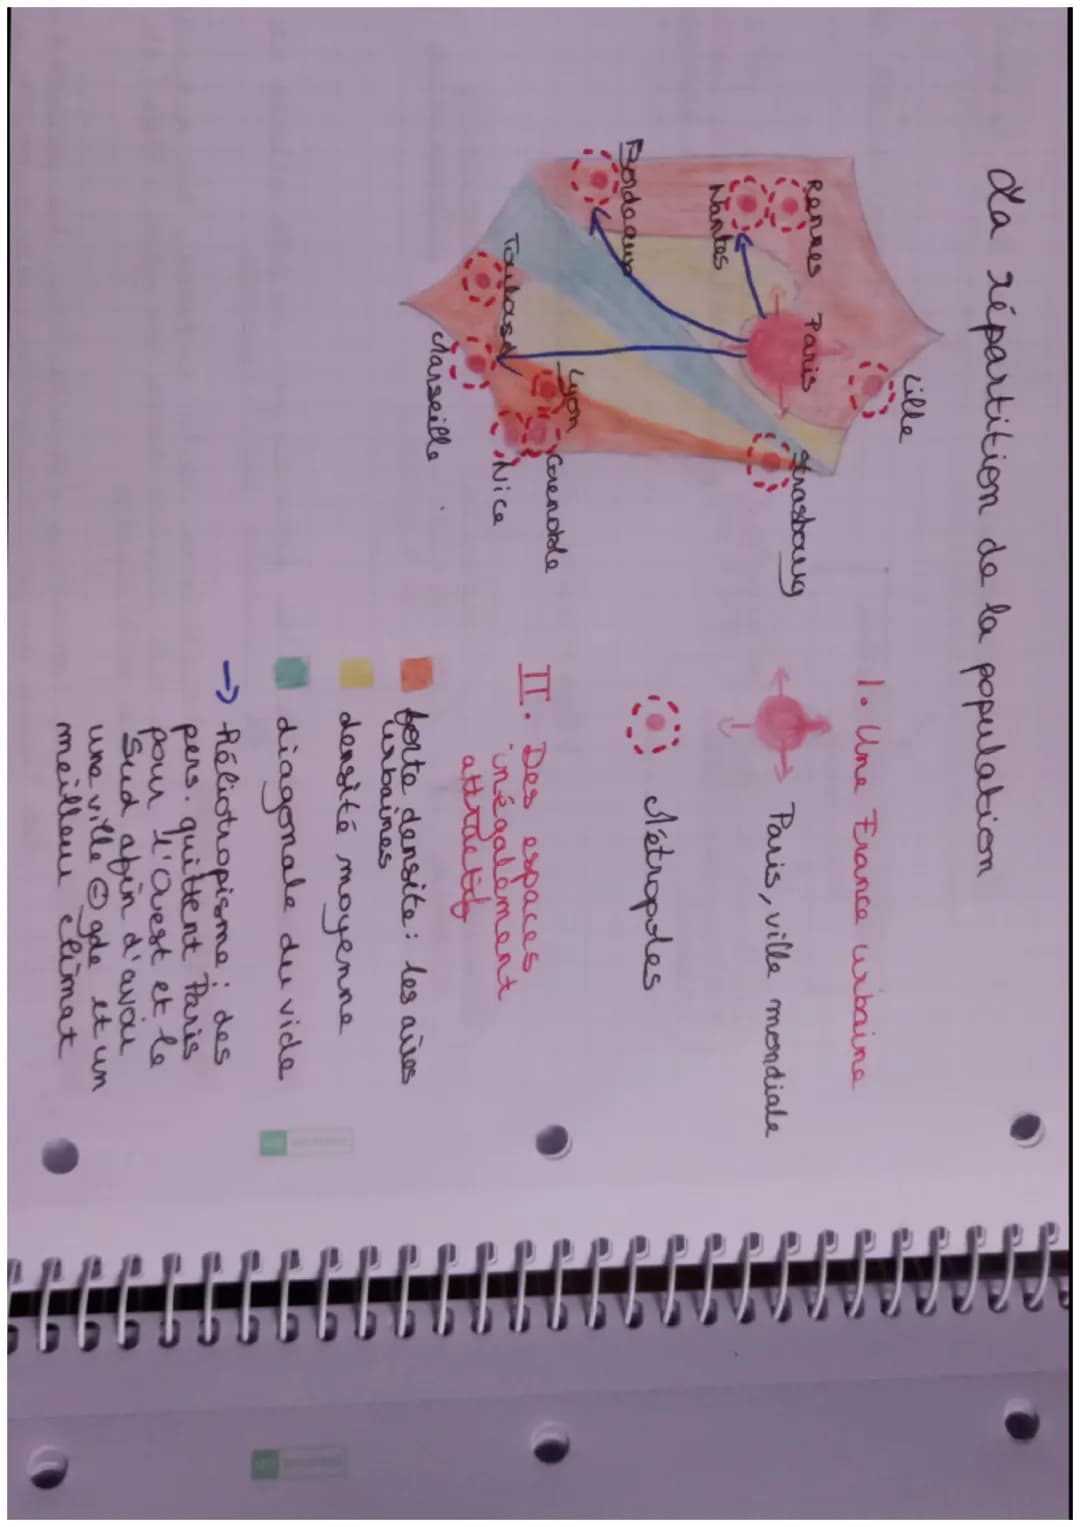 La répartition de la population
Lille
Rennes
Paris
Strasbourg
Nantes
Bordeaux
Lyon
Grenoble
Toulouse
Nice
Marseille
1. Une France urbaine
Paris, ville mondiale
Métropoles
II. Des espaces
inégalement
attractifs
forte densite : les aires
urbaines
densité moyenne
diagonale du vide
→ héliotropisme : des
pers. quittent Paris
pour l'Ouest et le
Sud afin d'avoir
une ville ⊖ gde et un
meilleur climat